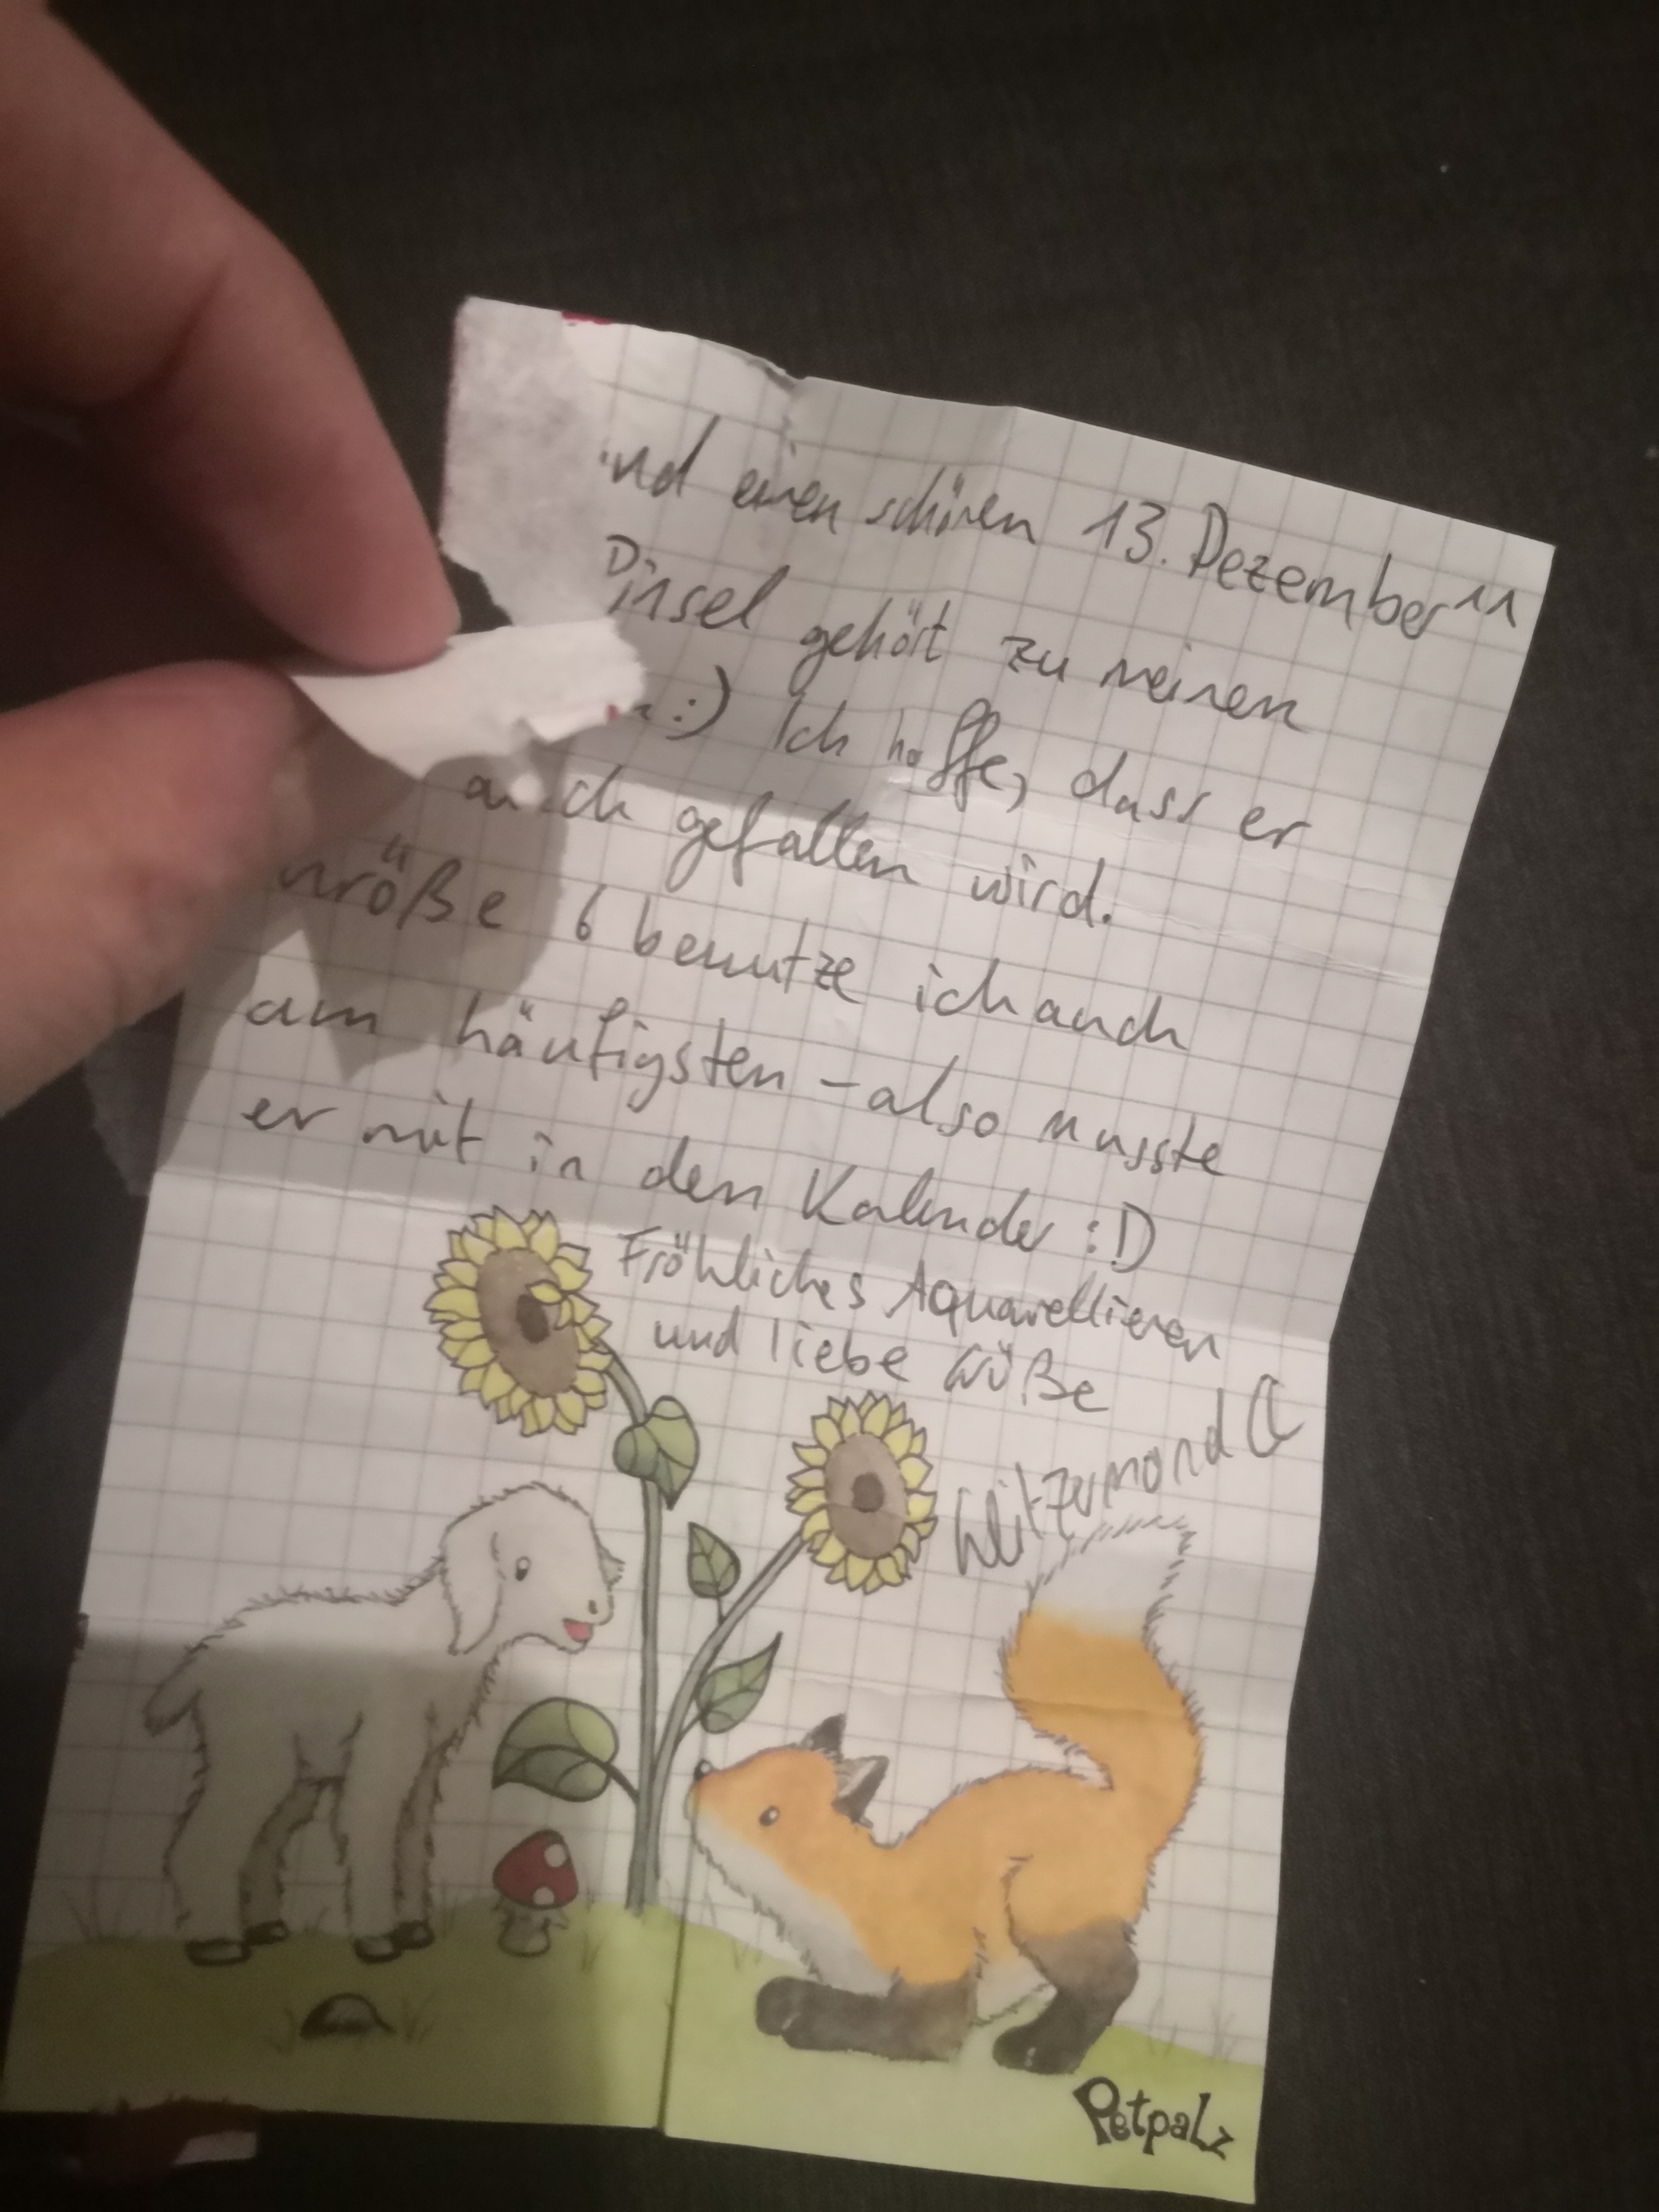 einen schönen 13. Dezember ^^
Pinsel gehört zu meinen
:) Ich hoffe, dass er
auch gefallen wird.
größe 6 benutze ich auch
am häufigsten – also musste
er mit in den Kalender :D
Fröhliches Aquarellieren
und liebe Grüße
Glitzermond
Petpalz